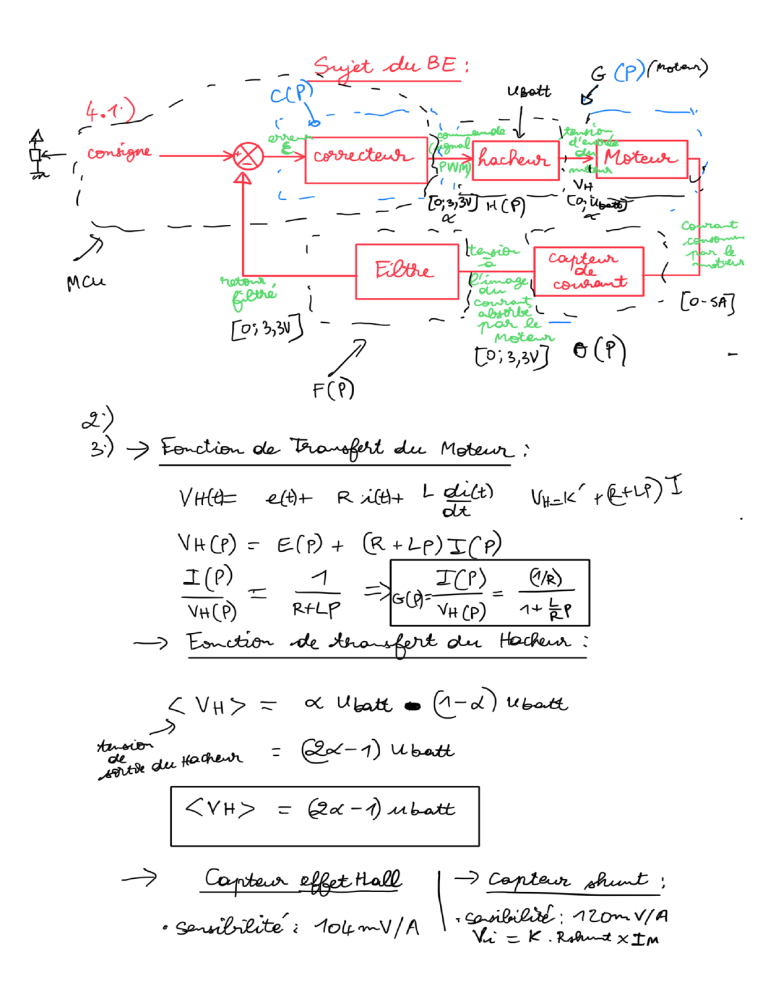 Sujet du BE :
G (P) (Moteur)
C(P)
Ubatt
4.1)
consigne
erreur
ε
correcteur
commande
(signal
PWM)
hacheur
tension
d'entrée
du
moteur
Moteur
VH
[0; Ubatt]
α
[0; 3,3V] H(P)
α
MCU
retour
filtré
[0; 3,3V]
Filtre
tension
à
l'image
du
courant
absorbé
par le
Moteur
[0; 3,3V]
capteur
de
courant
Courant
consommé
par le
moteur
[0-5A]
θ(P)
F(P)
2.)
3.) → Fonction de Transfert du Moteur :
VH(t)= e(t)+ R i(t)+ L di(t)/dt VH=K' + (R+LP) I
VH(P) = E(P) + (R + LP) I(P)
I(P)/VH(P) = 1/R+LP => G(P)= I(P)/VH(P) = (1/R)/1+ L/R P
→ Fonction de transfert du Hacheur :
<VH> = α Ubatt - (1-α) Ubatt
tension
de
sortie du Hacheur
= (2α-1) Ubatt
<VH> = (2α-1) Ubatt
→ Capteur effet Hall
• sensibilité : 104mV/A
→ Capteur shunt :
• sensibilité : 120mV/A
Vi = K . Rshunt x IM